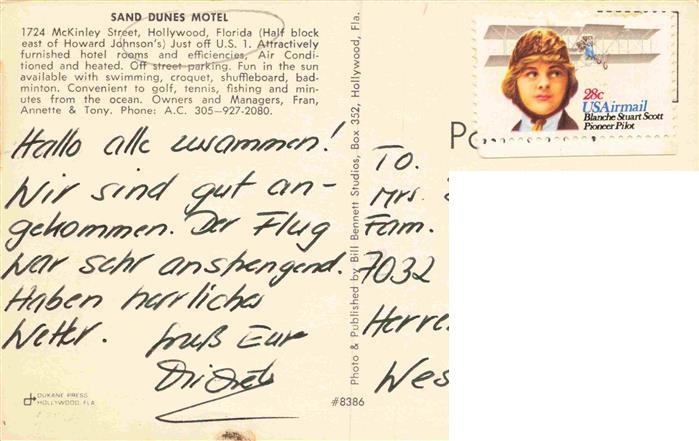 SAND DUNES MOTEL
1724 McKinley Street, Hollywood, Florida (Half block
east of Howard Johnson's) Just off U.S. 1. Attractively
furnished hotel rooms and efficiencies, Air Condi-
tioned and heated. Off street parking. Fun in the sun
available with swimming, croquet, shuffleboard, bad-
minton. Convenient to golf, tennis, fishing and min-
utes from the ocean. Owners and Managers, Fran,
Annette & Tony. Phone: A.C. 305-927-2080.
Hallo alle zusammen!
Wir sind gut an-
gekommen. Der Flug
war sehr anstrengend.
Haben herrliches
Wetter. Gruß Eure
DUKANE PRESS
HOLLYWOOD, FLA.
Photo & Published by Bill Bennett Studios, Box 352, Hollywood, Fla.
#8386
28c
USAirmail
Blanche Stuart Scott
Pioneer Pilot
Po
To.
Mrs.
Fam.
7032
Herre
Wes